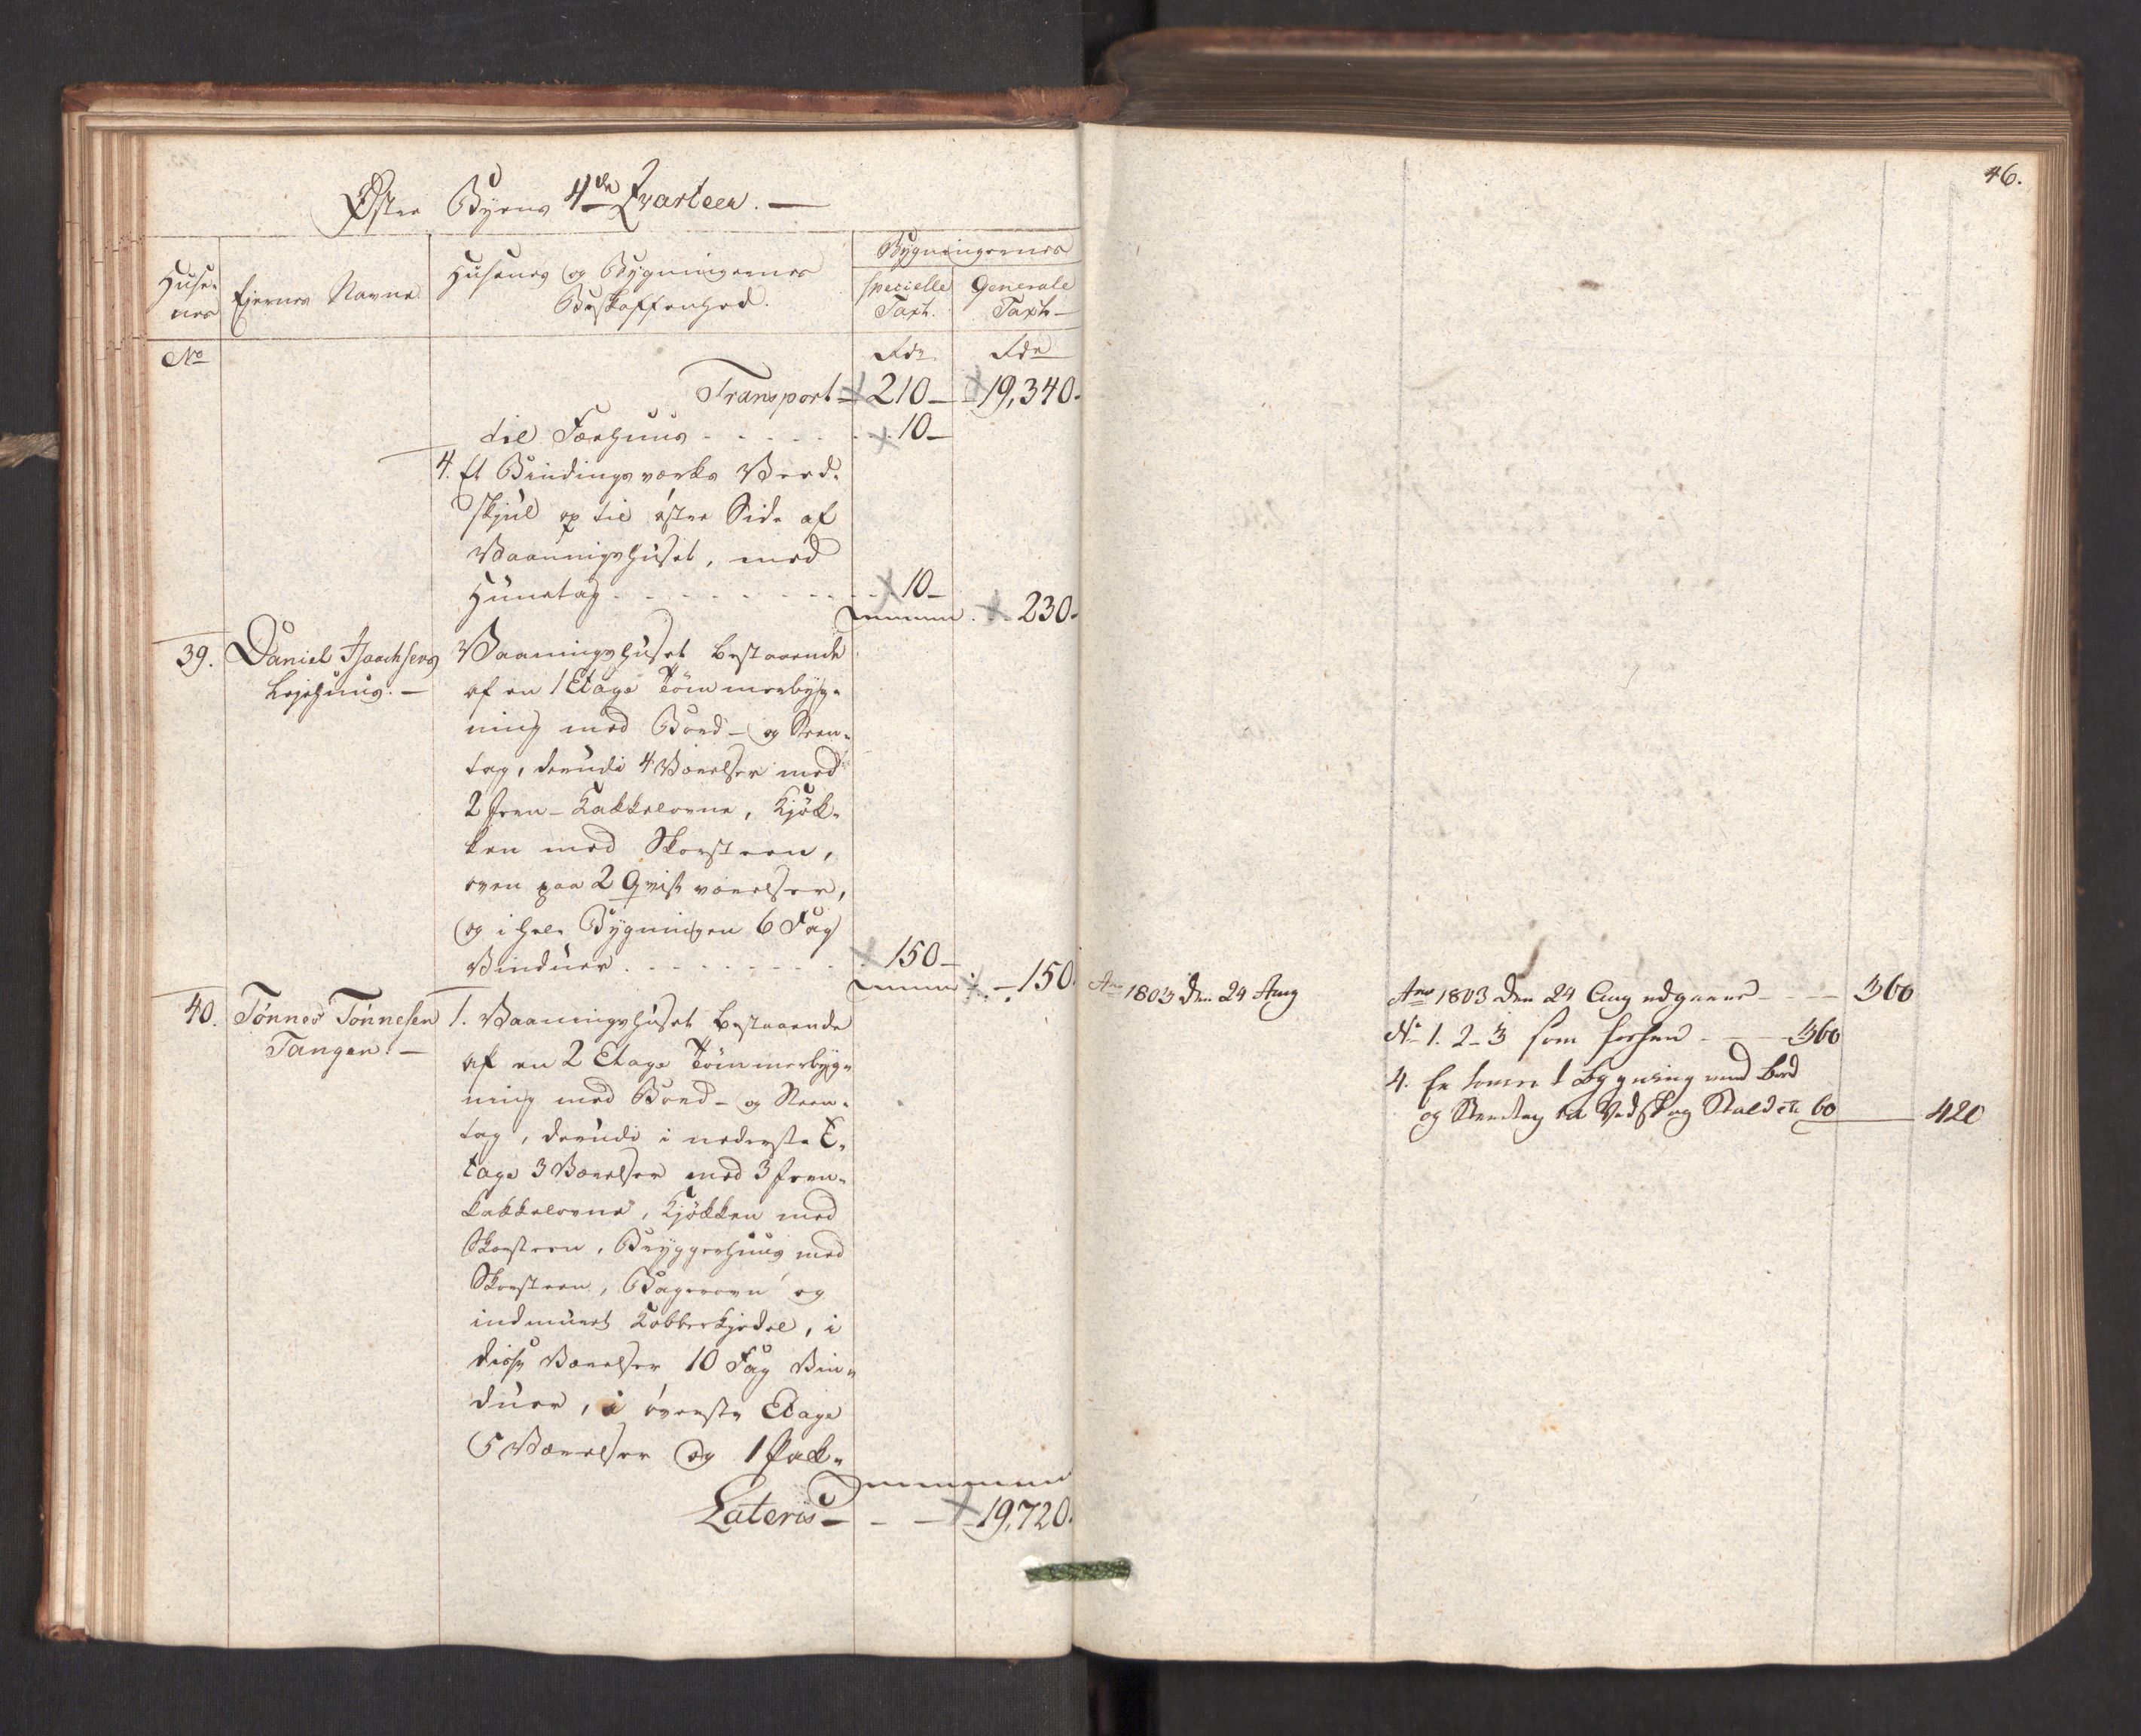 Øster Byens 4de Qvarteer. —
Huse-
nes
Ejernes Navne.
Husenes og Bygningernes
Beskaffenhed.
Bygningernes
specielle
Taxt.
Generale
Taxt —
No
Rdr.
Rdr
Transport — 210 — 19,340.
til Fæehuus - - - - 10 —
4. Et Bindingsværks Veed-
skjul op til østre Side af
Vaaningshuset, med
Hunetag - - - - - 10 —
230.
39. Daniel Isaachsens
Lejehuus. —
Vaaningshuset bestaaende
af en 1 Etage Tømmerbyg-
ning med Bord- og Steen-
tag, derudi 4 Værelser med
2 Jern-Kakkelovne, Kjøk-
ken med Skorsteen,
oven paa 2 Qvistværelser,
og i hele Bygningen 6 Fag
Vinduer. - - - - - 150 —
— 150.
40. Tønnes Tønnesen
Tangen. —
1. Vaaningshuset bestaaende
af en 2 Etage Tømmerbyg-
ning med Bord- og Steen-
tag, derudi i nederste E-
tage 3 Værelser med 3 Jern-
kakkelovne, Kjøkken med
Skorsteen, Bryggerhuus med
Skorsteen, Bagerovn og
indmuret Kobberkjedel, i
disse Værelser 10 Fag Vin-
duer, i øverste Etage
5 Værelser og 1 Pak-
Lateris — - — 19,720.
46.
Ano 1803 den 24 Aug
Ano 1803 den 24 Aug udgaaer - - — 360
No 1. 2 - 3 som forhen - — 360
4. En tømret Bygning med Bord
og Steentag til Vedsk og Stald 60 — 420